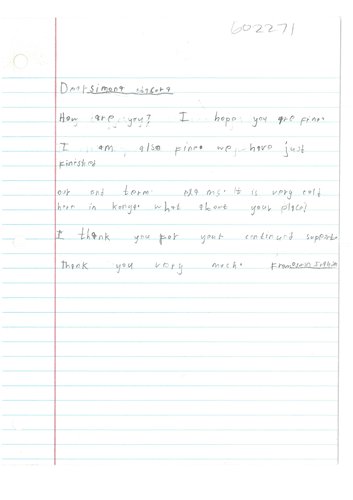 602271
Dear simona
How are you? I hope you are fine.
I am also fine we have just
finished
our end term it is very cold
here in kenya. what about your place?
I thank you for your continued support
thank you very much. From